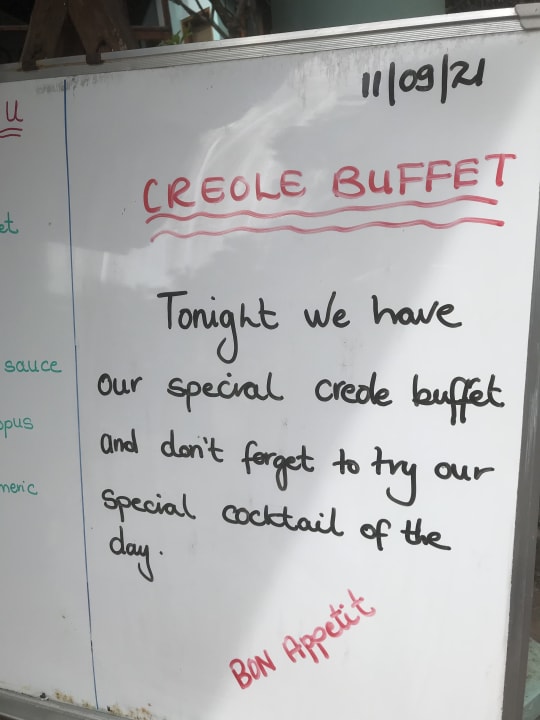 U
et
sauce
opus
meric
11/09/21
CREOLE BUFFET
Tonight we have
our special creole buffet
and don't forget to try our
special cocktail of the
day.
BON Appetit